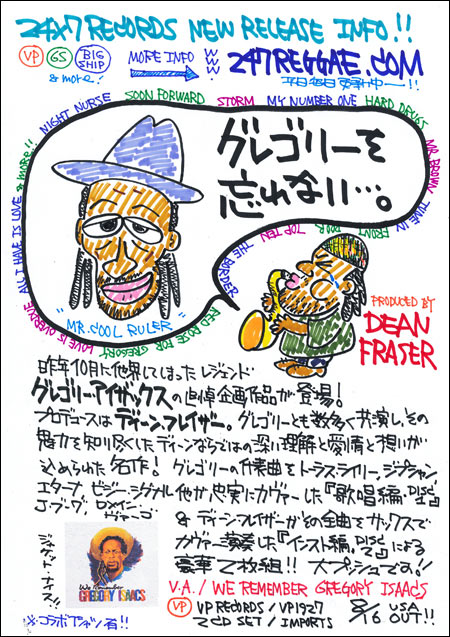 24x7 RECORDS NEW RELEASE INFO.!!
VP GS BIG SHIP MORE INFO WWW. 247REGGAE.COM
& more!
平日毎日更新中ー!!
NIGHT NURSE SOON FORWARD STORM MY NUMBER ONE HARD DRUGS
MR. BROWN
FRONT DOOR
TOP TEN
THE BORDER
RED ROSE FOR GREGORY
LOVE IS OVERDUE
ALL I HAVE IS LOVE & MORE!!
グレゴリーを
忘れない…。
"MR. COOL RULER"
PRODUCED BY
DEAN
FRASER
昨年10月に他界してしまったレジェンド
グレゴリー・アイザックスの追悼企画作品が登場!
プロデュースはディーン・フレイザー。グレゴリーとも数多く共演し、その
魅力を知り尽くしたディーンならではの深い理解と愛情と想いが
込められた名作! グレゴリーの代表曲をトーラス・ライリー、ジプシャン、
エターナ、ビジー・シグナル他が忠実にカヴァーした『歌唱編・DISC 1』
J・ブーグ、ロメイン・ヴァーゴ
& ディーン・フレイザーがその全曲をサックスで
カヴァー演奏した『インスト編・DISC 2』による
豪華2枚組!! 大プッシュです!!
ジャケット・ナイス!!
We Remember
GREGORY ISAACS
※コラボTシャツ有!!
V.A. / WE REMEMBER GREGORY ISAACS
VP VP RECORDS / VP1927
2CD SET / IMPORTS
2/16 USA OUT!!